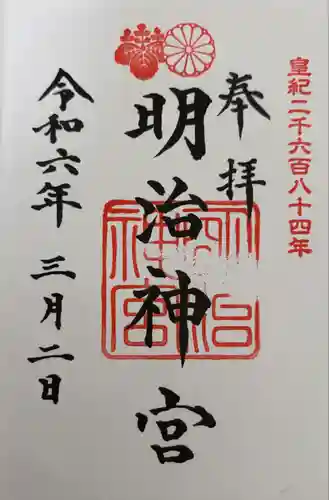 皇紀二千六百八十四年
奉拝
明治神宮
明治神宮
令和六年三月二日